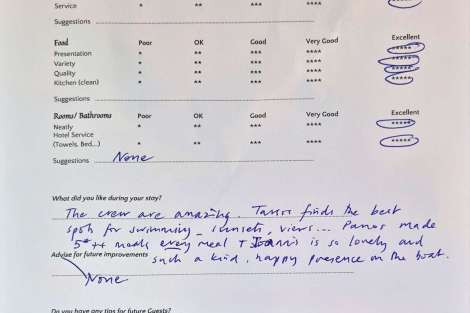 Service * ** *** **** *****
Suggestions
Food Poor OK Good Very Good Excellent
Presentation * ** *** **** *****
Variety * ** *** **** *****
Quality * ** *** **** *****
Kitchen (clean) * ** *** **** *****
Suggestions
Rooms/ Bathrooms Poor OK Good Very Good Excellent
Neatly * ** *** **** *****
Hotel Service
(Towels, Bed...) * ** *** **** *****
Suggestions None
What did you like during your stay?
The crew are amazing. finds the best
spots for swimming, sunsets, views... Panos made
5* ++ meals every meal + is so lovely and
such a kind, happy presence on the boat.
Advise for future improvements
None
Do you have any tips for future Guests?